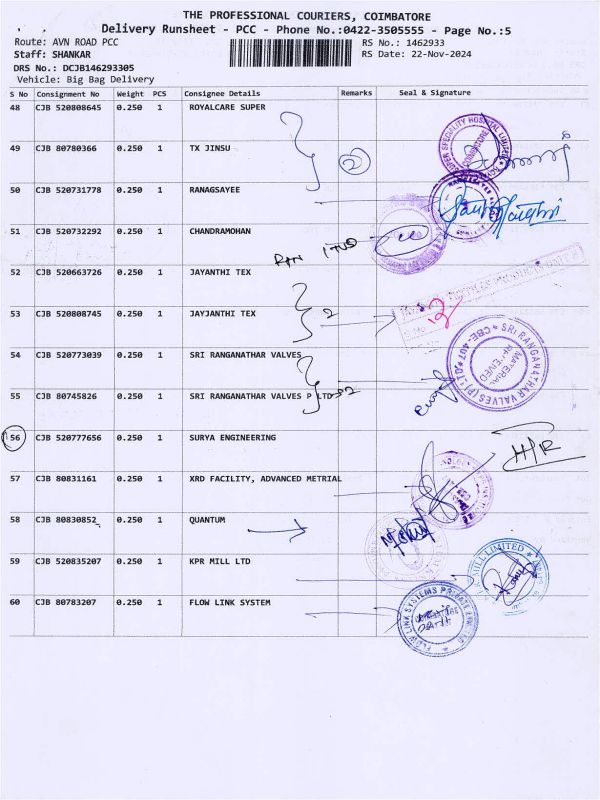 THE PROFESSIONAL COURIERS, COIMBATORE
Delivery Runsheet - PCC - Phone No.:0422-3505555 - Page No.:5
Route: AVN ROAD PCC RS No.: 1462933
Staff: SHANKAR RS Date: 22-Nov-2024
DRS No.: DCJB146293305
Vehicle: Big Bag Delivery
S No Consignment No Weight PCS Consignee Details Remarks Seal & Signature
48 CJB 520808645 0.250 1 ROYALCARE SUPER
49 CJB 80780366 0.250 1 TX JINSU 2
50 CJB 520731778 0.250 1 RANAGSAYEE
51 CJB 520732292 0.250 1 CHANDRAMOHAN
52 CJB 520663726 0.250 1 JAYANTHI TEX
53 CJB 520808745 0.250 1 JAYJANTHI TEX 2
54 CJB 520773039 0.250 1 SRI RANGANATHAR VALVES
SRI RANGANATHAR VALVES (P) LTD
CBE-407
MATERIAL
55 CJB 80745826 0.250 1 SRI RANGANATHAR VALVES P LTD
56 CJB 520777656 0.250 1 SURYA ENGINEERING
57 CJB 80831161 0.250 1 XRD FACILITY, ADVANCED METRIAL
58 CJB 80830852 0.250 1 QUANTUM
59 CJB 520835207 0.250 1 KPR MILL LTD
MILL LIMITED
60 CJB 80783207 0.250 1 FLOW LINK SYSTEM
FLOW LINK SYSTEMS PRIVATE LIMITED